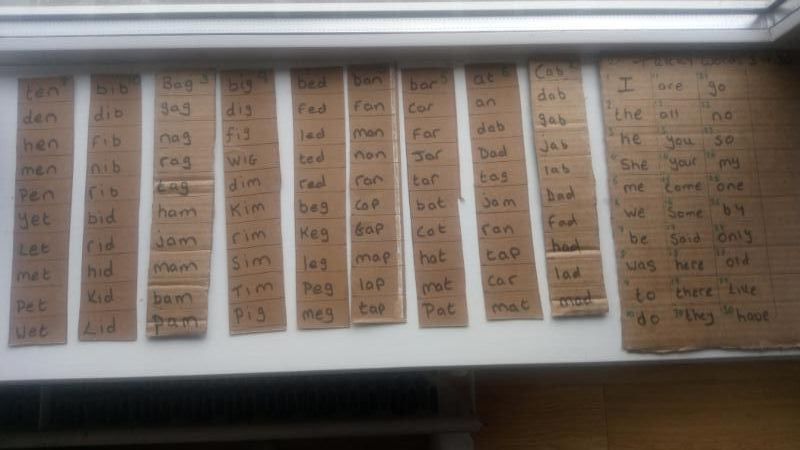 ten
den
hen
men
Pen
Yet
Let
met
Pet
Wet
bib 10
dib
fib
nib
rib
bid
rid
hid
Kid
Lid
Bag 3
gag
nag
rag
tag
ham
jam
mam
bam
Pam
big 9
dig
fig
WIG
dim
Kim
rim
Sim
Tim
Pig
bed
Fed
led
ted
red
beg
Keg
leg
Peg
meg
ban
Fan
man
nan
ran
cap
gap
map
lap
tap
bar 5
Car
Far
Jar
tar
bat
Cat
hat
mat
Pat
at 6
an
dab
Dad
tag
jam
ran
tap
car
mat
Cab
dab
gab
jab
lab
Dad
Fad
had
lad
mad
Tricky words
I are go
the all no
he you so
She your my
me come one
we Some by
be Said only
was here old
to there Like
do they have